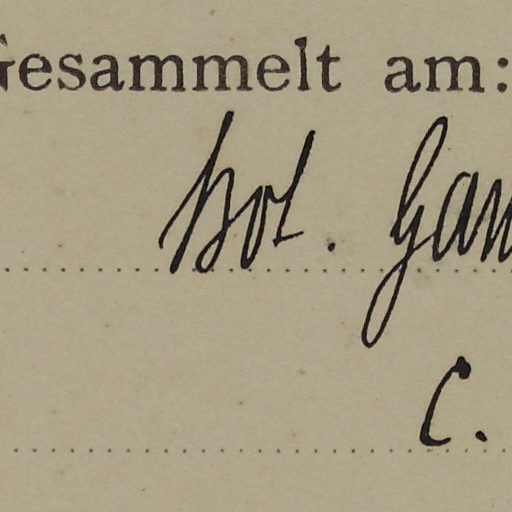 Gesammelt am:
bot. Gan
C.